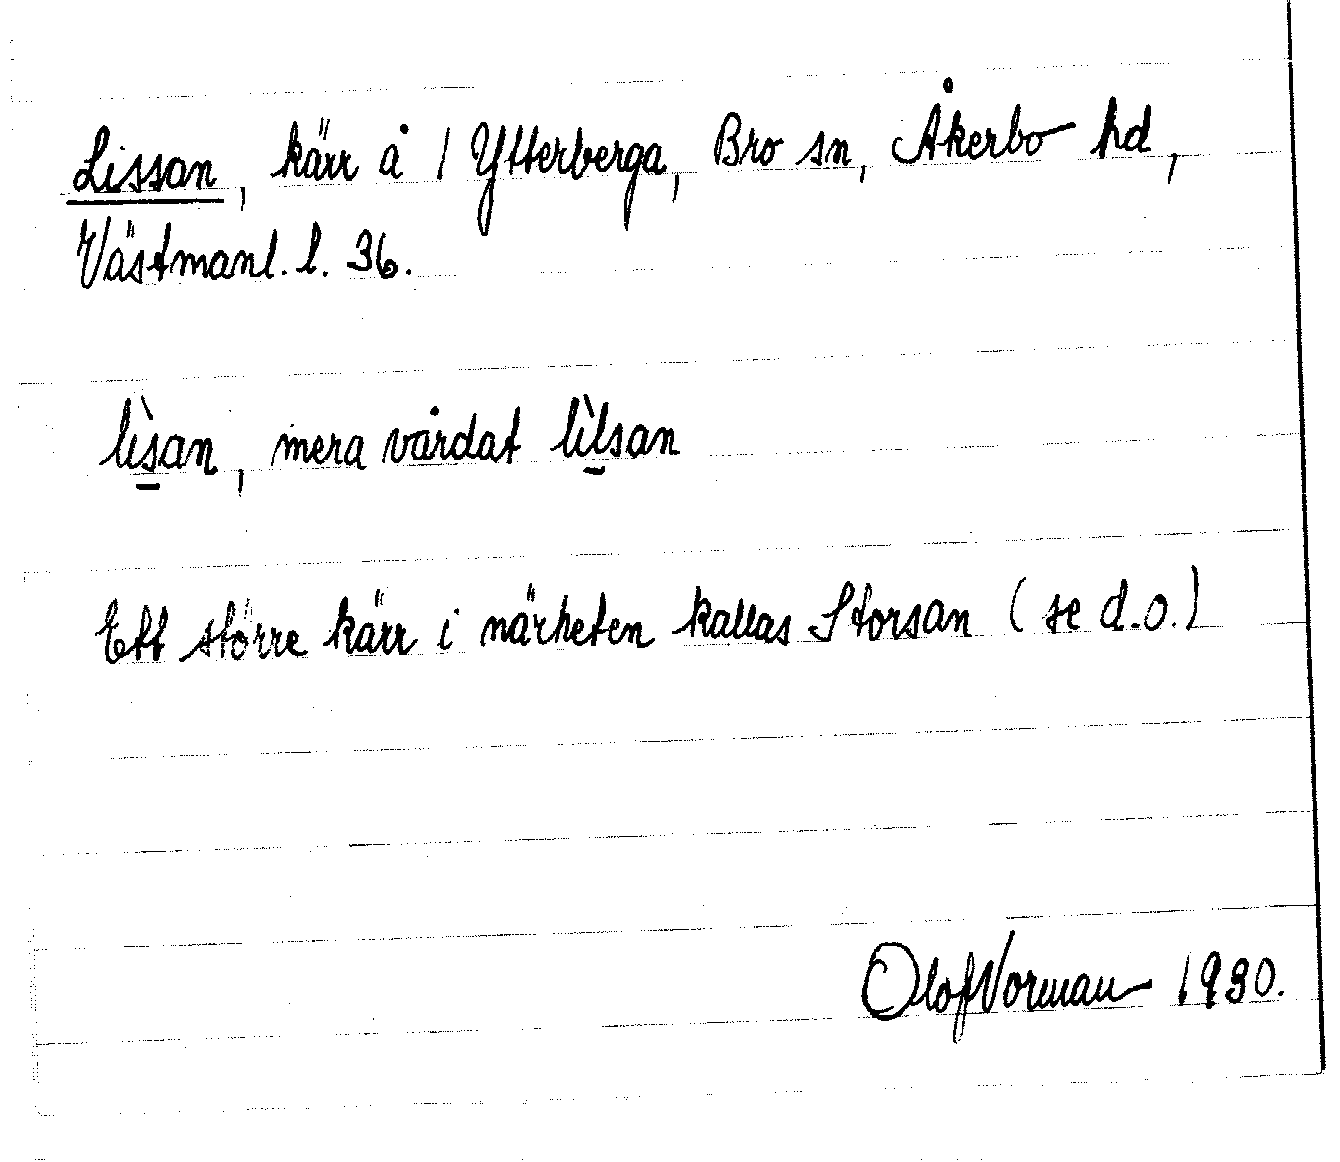 Lissan, kärr å / Ytterberga, Bro sn, Åkerbo hd,
Västmanl. l. 36.
lìs̲an, mera vårdat lìl̲san
Ett större kärr i närheten kallas Storsan (se d.o.)
Olof Norman 1930.